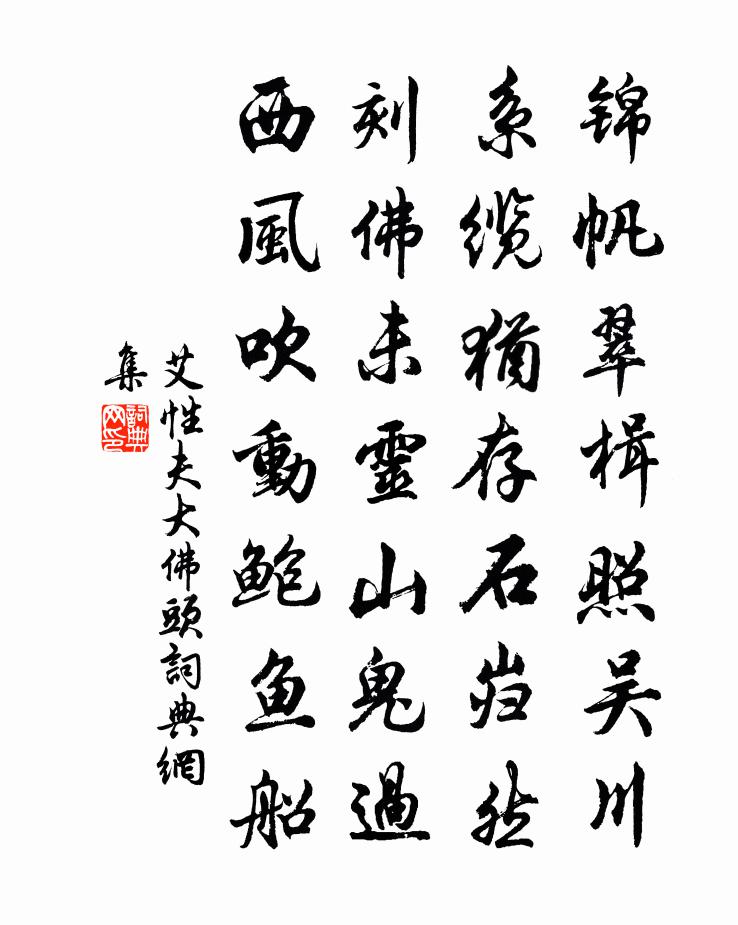 锦帆翠楫照吴川
系缆猶存石岿然
刻佛未靈山鬼過
西風吹動鲍鱼船
艾性夫大佛頭詞典網
集
詞典网印